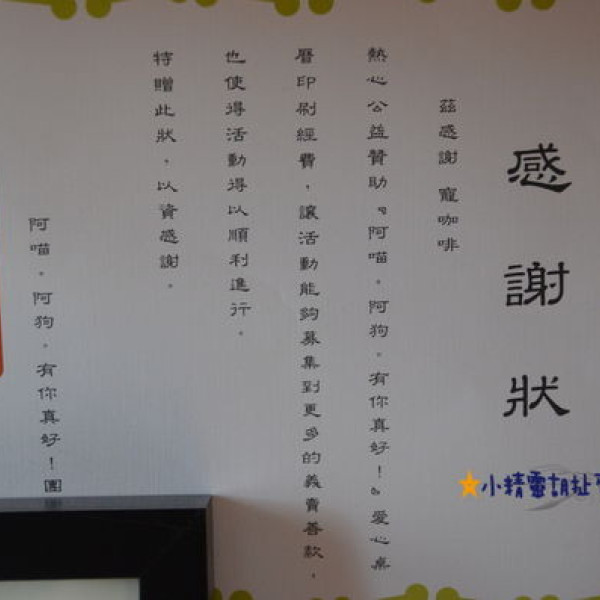 感謝狀
茲感謝 寵咖啡
熱心公益贊助『阿喵。阿狗。有你真好！』愛心桌
曆印刷經費，讓活動能夠募集到更多的義賣善款，
也使得活動得以順利進行。
特贈此狀，以資感謝。
阿喵。阿狗。有你真好！團
小精靈胡扯